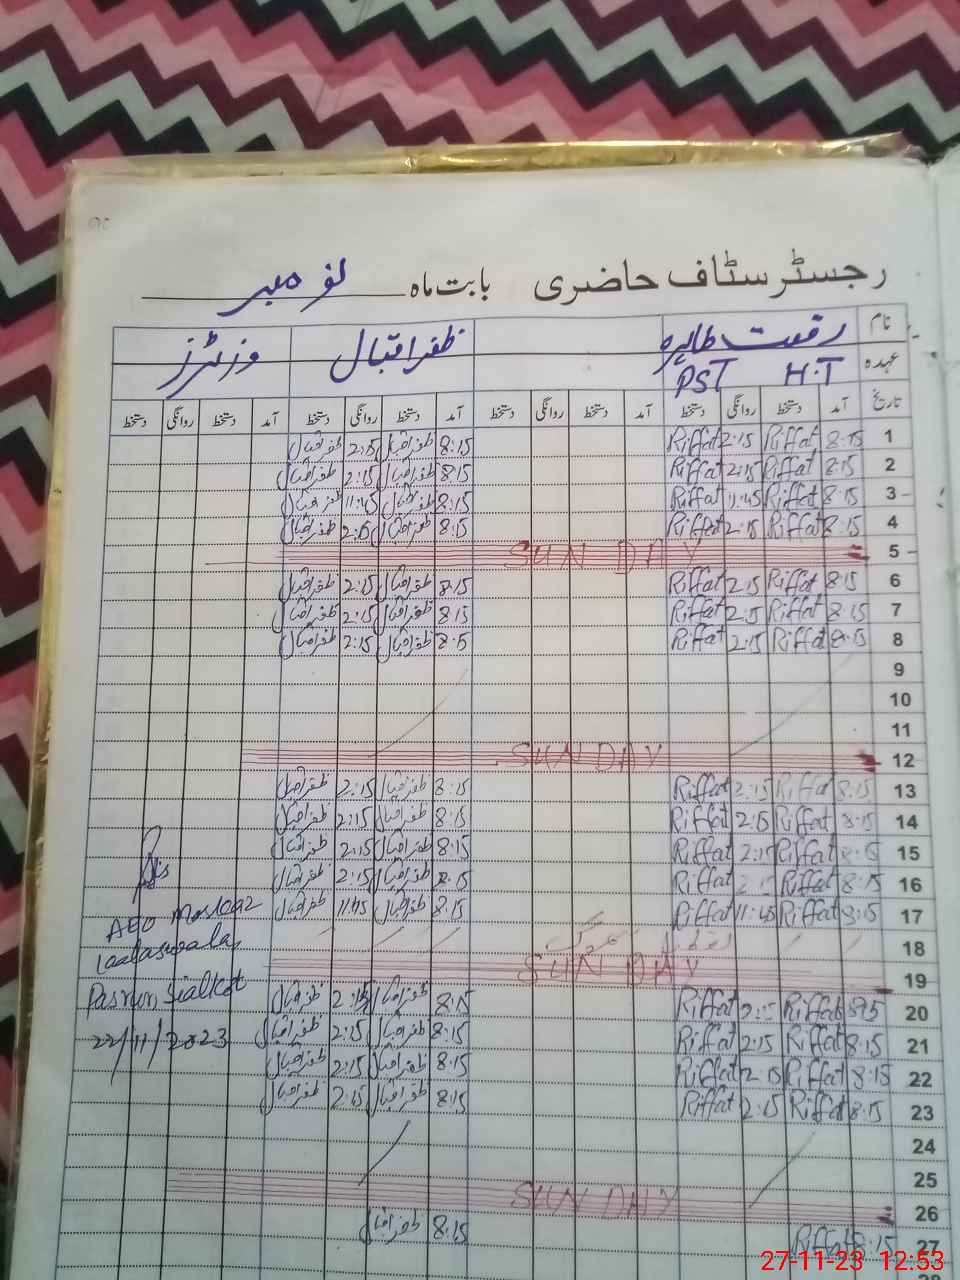 رجسٹر سٹاف حاضری بابت ماہ نومبر
نام رفعت طاہرہ ظفر اقبال وزٹرز
عہدہ H.T PST
تاریخ آمد دستخط روانگی دستخط آمد دستخط روانگی دستخط آمد دستخط روانگی دستخط آمد دستخط روانگی دستخط
1 8:15 Riffat 2:15 Riffat 8:15 ظفراقبال 2:15 ظفراقبال
2 8:15 Riffat 2:15 Riffat 8:15 ظفراقبال 2:15 ظفراقبال
3 8:15 Riffat 11:45 Riffat 8:15 ظفراقبال 11:45 ظفراقبال
4 8:15 Riffat 2:15 Riffat 8:15 ظفراقبال 2:15 ظفراقبال
5 SUN DAY
6 8:15 Riffat 2:15 Riffat 8:15 ظفراقبال 2:15 ظفراقبال
7 8:15 Riffat 2:15 Riffat 8:15 ظفراقبال 2:15 ظفراقبال
8 8:15 Riffat 2:15 Riffat 8:15 ظفراقبال 2:15 ظفراقبال
9
10
11
12 SUN DAY
13 8:15 Riffat 2:15 Riffat 8:15 ظفراقبال 2:15 ظفراقبال
14 8:15 Riffat 2:15 Riffat 8:15 ظفراقبال 2:15 ظفراقبال
15 8:15 Riffat 2:15 Riffat 8:15 ظفراقبال 2:15 ظفراقبال
16 8:15 Riffat 2:15 Riffat 8:15 ظفراقبال 2:15 ظفراقبال
17 8:15 Riffat 11:45 Riffat 8:15 ظفراقبال 11:45 ظفراقبال
AEO Markaz
18
19 SUN DAY
20 8:15 Riffat 2:15 Riffat 8:15 ظفراقبال 2:15 ظفراقبال
Pasrur, Sialkot
21 8:15 Riffat 2:15 Riffat 8:15 ظفراقبال 2:15 ظفراقبال
22/11/2023
22 8:15 Riffat 2:15 Riffat 8:15 ظفراقبال 2:15 ظفراقبال
23 8:15 Riffat 2:15 Riffat 8:15 ظفراقبال 2:15 ظفراقبال
24
25
26 SUN DAY
27 8:15 Riffat 8:15 ظفراقبال
27-11-23 12:53